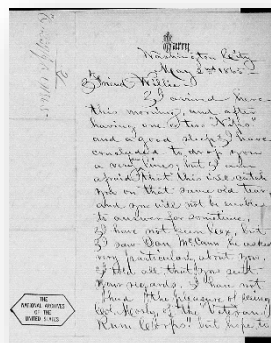 Harry
Washington City
May 2nd 1865
Friend Willie
I arrived here
this morning, and after
having one or two "Nips"
and a good sleep I have
concluded to drop you
a very few lines, but I am
afraid that this will catch
you on that same old tear,
and you will not be enabled
to answer for sometime,
I have not seen but
I saw Dan McCann he asked
very particularly about you,
I told all that you sent
your regards. I have not
had "the pleasure of seeing
Col of the "Veteran
Rum Corps" but hope to
THE
NATIONAL ARCHIVES
OF THE
UNITED STATES